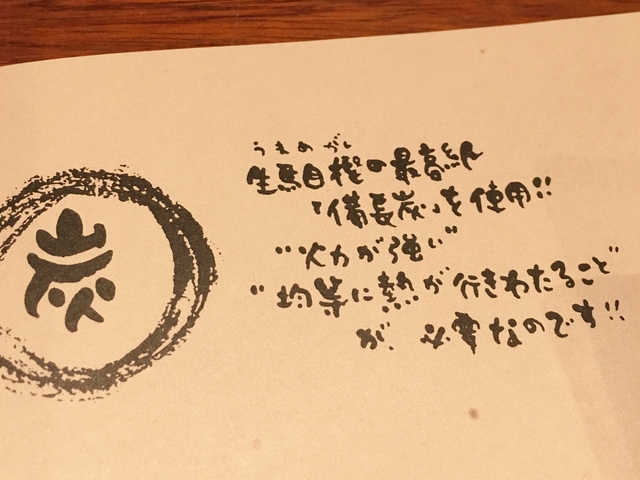 炭
うまめがし
生馬目樫の最高級
「備長炭」を使用!!
…火力が強い”
“均等に熱が行きわたること”
が 必要なのです!!